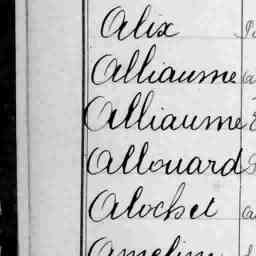 Alix
Alliaume
Alliaume
Allouard
Alochet